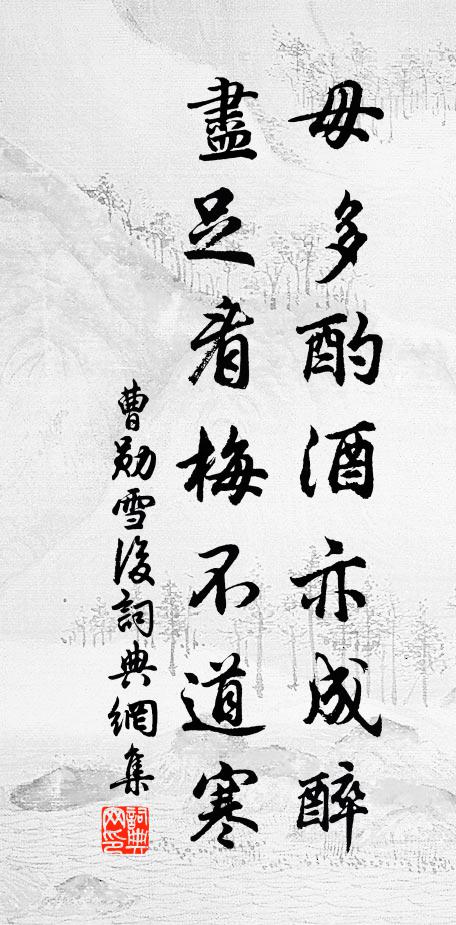 毋多酌酒亦成醉
盡足看梅不道寒
曹勛雪後詞典網集
詞典网印